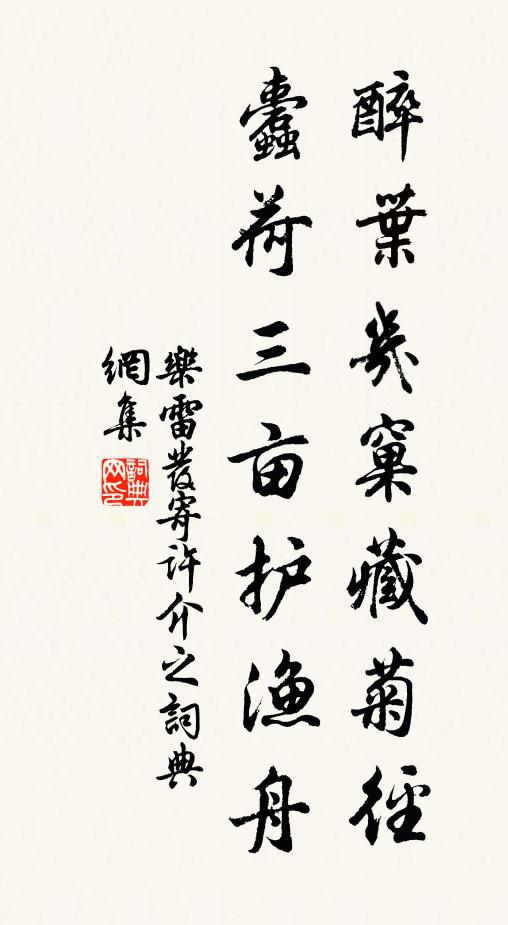 醉葉幾窠藏菊徑
蠹荷三亩护漁舟
樂雷發寄許介之詞典
網集
詞典網印